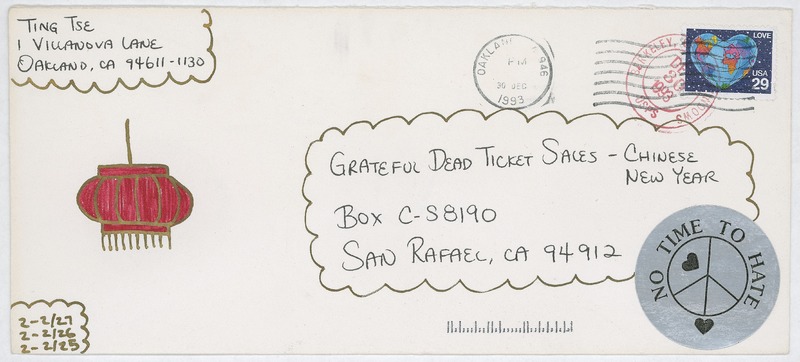 TING TSE
1 VILLANOVA LANE
OAKLAND, CA 94611-1130
OAKLAND
PM
30 DEC
1993
BERKELEY,
DEC
30
1993
USPS
LOVE
USA
29
GRATEFUL DEAD TICKET SALES - CHINESE
NEW YEAR
BOX C-S8190
SAN RAFAEL, CA 94912
NO TIME TO HATE
2-2/27
2-2/26
2-2/25